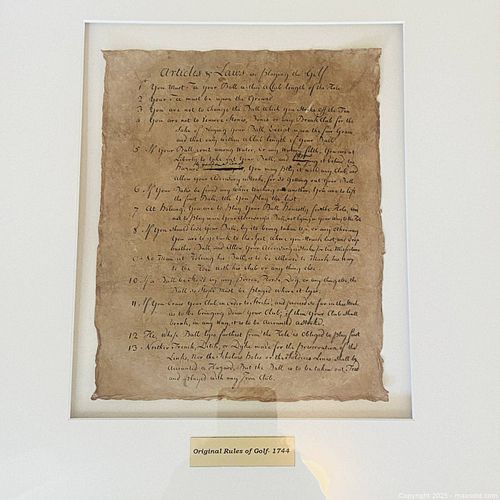 Articles & Laws in playing the Golf
1 You Must Tee your Ball within a Club length of the Hole
2 Your Tee must be upon the Ground
3 You are not to Change the Ball which you Strike off the Tee
4 You are not to Remove Stones, Bones or any Break Club for the
Sake of Playing your Ball Except upon the fair Green
and that only within a Club length of your Ball
5 If your Ball come among Water, or any Watery filth, You are at
Liberty to take out Your Ball, and it behind the
Hazard, You may Play it with any Club and
allow your Adversary a Stroke, for so Getting out Your Ball
6 If Your Balls be found any where touching one another, You are to lift
the first Ball, till You play the last
7 At Holeing, You are to Play Your Ball Honestly for the Hole, and
not to Play upon Your Adversary's Ball, not lying in Your Way to the Hole
8 If You Should Lose Your Ball, by its being taken up, or any other way
You are to go back to the Spot, where You Struck last, and drop
another Ball, and Allow Your Adversary a Stroke for the Misfortune
9 No Man at Holeing his Ball, is to be Allowed to Mark his way
to the Hole with his Club or any thing else
10 If a Ball be Stop'd by any Person, Horse, Dog, or any thing else, the
Ball so Stop'd Must be Played where it lyes
11 If You draw Your Club in order to Strike, and proceed so far in the Stroke
as to be bringing down Your Club; if then Your Club Shall
break, in any Way, it is to be Accounted a Stroke
12 He, Whose Ball lyes farthest from the Hole is Obliged to Play first
13 Neither Trench, Ditch, or Dyke made for the Preservation of the
Links, Nor the Scholars Holes or the Soldiers Lines Shall be
Accounted a Hazard, But the Ball is to be taken out Teed
and played with any Iron Club
Original Rules of Golf- 1744
Copyright 2025 - maxsold.com